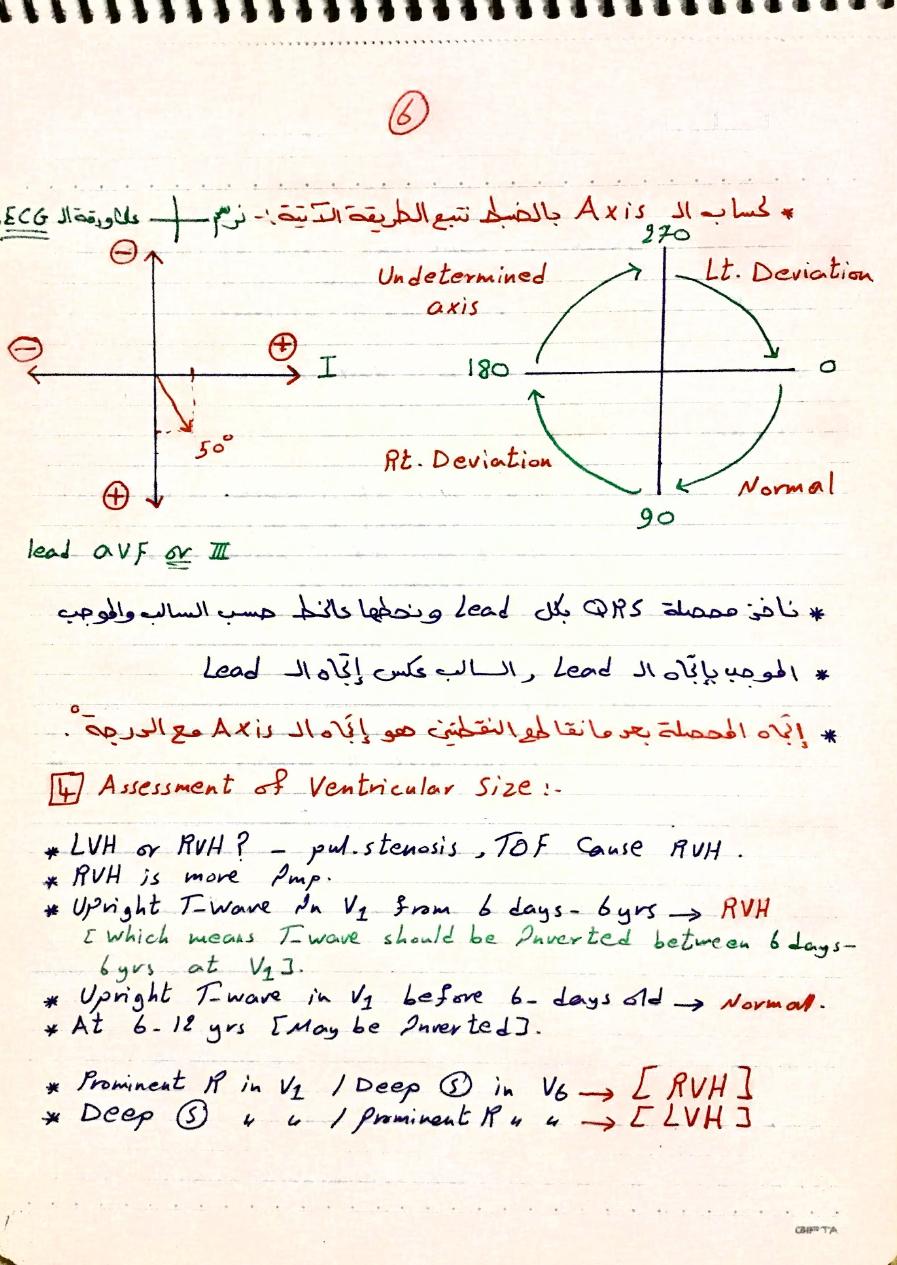 6
* لحساب الـ Axis بالضبط نتبع الطريقة الآتية :- نرسم + على ورقة الـ ECG
270
Undetermined axis
Lt. Deviation
180
0
Rt. Deviation
Normal
90
−
−
+
I
50°
+
lead aVF or III
* ناخذ محصلة QRS بكل Lead ونحطها عالخط حسب السالب والموجب
* الموجب بإتجاه الـ Lead , السالب عكس إتجاه الـ Lead
* إتجاه المحصلة بعد ما نقاطع النقطتين هو إتجاه الـ Axis مع الدرجة°.
4 Assessment of Ventricular Size :-
* LVH or RVH? – pul.stenosis , TOF Cause RVH .
* RVH is more Imp.
* Upright T-Wave in V1 from 6 days- 6yrs → RVH
[ which means T-wave should be Inverted between 6 days-
6 yrs at V1 ].
* Upright T-wave in V1 before 6- days old → Normal.
* At 6-12 yrs [May be Inverted].
* Prominent R in V1 / Deep S in V6 → [ RVH ]
* Deep S " " / Prominent R " " → [ LVH ]